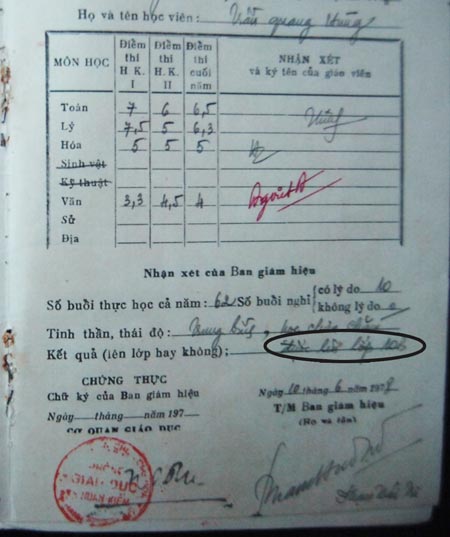 Họ và tên học viên : Trần quang Hùng
MÔN HỌC
Điểm thi H. K. I
Điểm thi H. K. II
Điểm thi cuối năm
NHẬN XÉT
và ký tên của giáo viên
Toán 7 6 6,5
Lý 7,5 5 6,3
Hóa 5 5 5
Sinh vật
Kỹ thuật
Văn 3,3 4,5 4
Sử
Địa
Nhận xét của Ban giám hiệu
Số buổi thực học cả năm : 62 Số buổi nghỉ
có lý do 10
không lý do 0
Tinh thần, thái độ : Trung bình, học
Kết quả (lên lớp hay không) : lớp 10b
CHỨNG THỰC
Chữ ký của Ban giám hiệu
Ngày tháng năm 197
CƠ QUAN GIÁO DỤC
Ngày 10 tháng 6 năm 1978
T/M Ban giám hiệu
(Họ và tên)
GIÁO DỤC